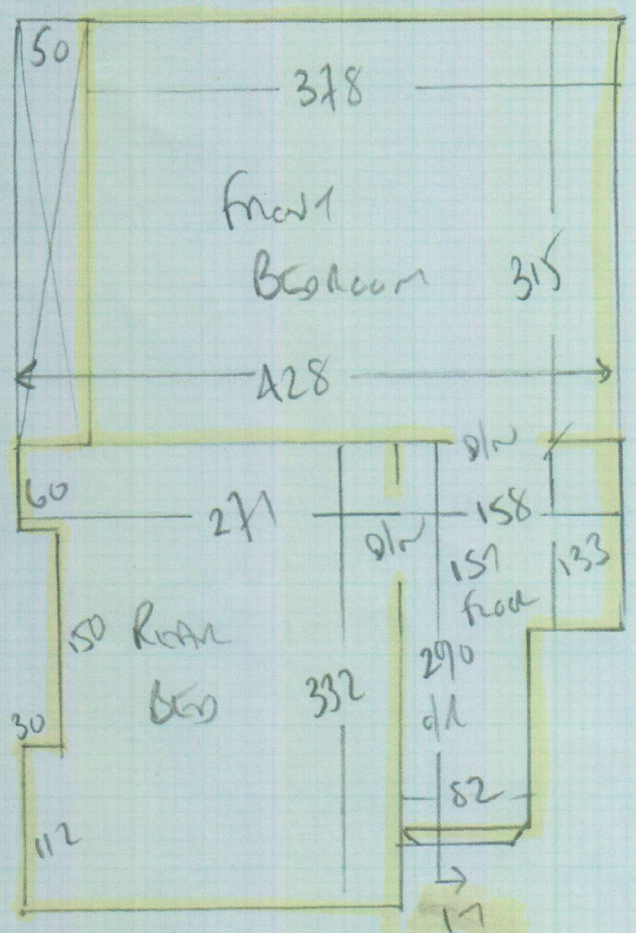 50
378
FRONT
BEDROOM
315
428
D/W
60
271
158
D/W
151
133
FLOOR
150
REAR
BED
332
290
30
82
112